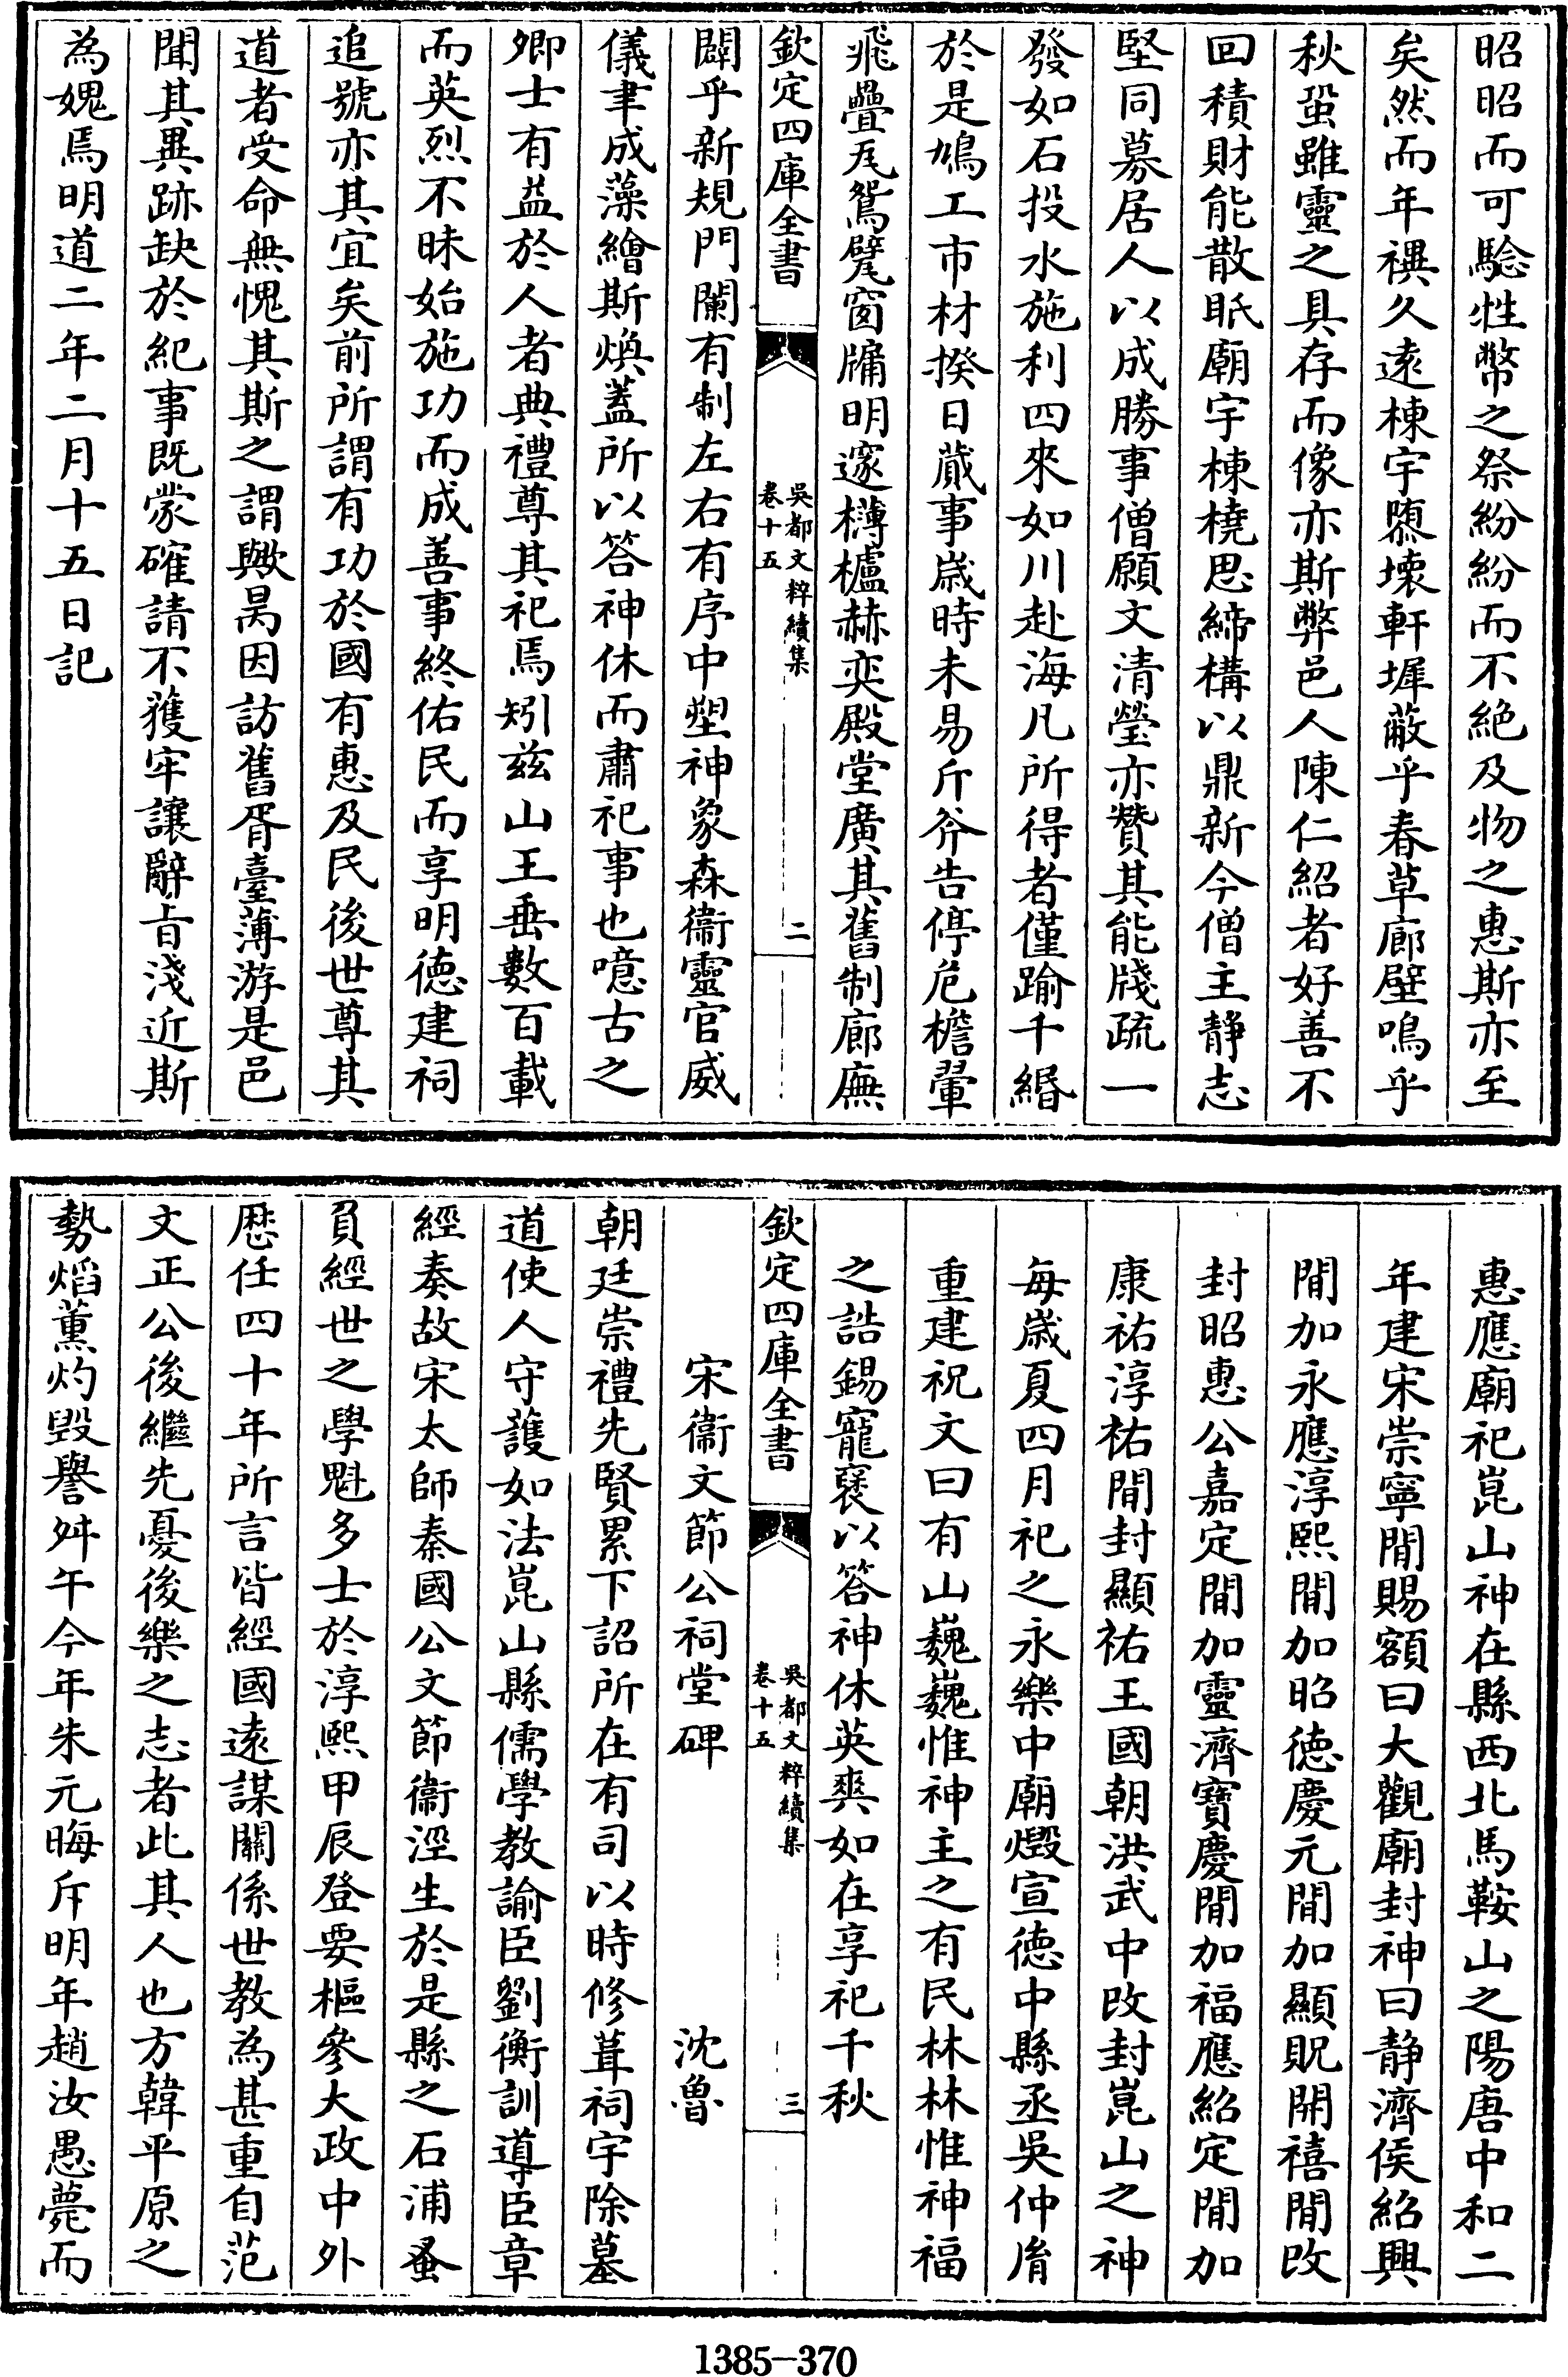 昭昭而可驗牲幣之祭紛紛而不絶及物之惠斯亦至
矣然而年禩久逺棟宇隳壊軒墀蔽乎春草廊壁鳴乎
秋蛩雖靈之具存而像亦斯弊邑人陳仁紹者好善不
回積財能散眂廟宇棟橈思締構以鼎新今僧主静志
堅同募居人以成勝事僧願文清瑩亦贊其能牋疏一
發如石投水施利四來如川赴海凡所得者僅踰千緡
於是鳩工市材揆日蕆事嵗時未易斤斧告停危檐翬
飛疊瓦鴛甃窗牖明邃欂櫨赫奕殿堂廣其舊制廊廡
欽定四庫全書
吳都文粹續集
卷十五
二
闢乎新規門闌有制左右有序中塑神象森衞靈官威
儀聿成藻繪斯煥蓋所以答神休而肅祀事也噫古之
卿士有益於人者典禮尊其祀焉矧兹山王垂數百載
而英烈不昧始施功而成善事終佑民而享明徳建祠
追號亦其宜矣前所謂有功於國有惠及民後世尊其
道者受命無愧其斯之謂歟昺因訪舊胥臺薄游是邑
聞其異跡缺於紀事既蒙確請不獲牢讓辭旨淺近斯
為媿焉明道二年二月十五日記
惠應廟祀崑山神在縣西北馬鞍山之陽唐中和二
年建宋崇寧閒賜額曰大觀廟封神曰静濟侯紹興
閒加永應淳熙閒加昭徳慶元閒加顯貺開禧閒改
封昭惠公嘉定閒加靈濟寶慶閒加福應紹定閒加
康祐淳祐閒封顯祐王國朝洪武中改封崑山之神
每嵗夏四月祀之永樂中廟燬宣徳中縣丞吳仲胤
重建祝文曰有山巍巍惟神主之有民林林惟神福
之誥錫寵褒以答神休英爽如在享祀千秋
欽定四庫全書
吳都文粹續集
卷十五
三
宋衞文節公祠堂碑 沈魯
朝廷崇禮先賢累下詔所在有司以時修葺祠宇除墓
道使人守護如法崑山縣儒學教諭臣劉衡訓導臣章
經奏故宋太師秦國公文節衞涇生於是縣之石浦蚤
負經世之學魁多士於淳熙甲辰登要樞參大政中外
歴任四十年所言皆經國逺謀關係世教為甚重自范
文正公後繼先憂後樂之志者此其人也方韓平原之
勢焰薰灼毀譽舛午今年朱元晦斥明年趙汝愚薨而
1385-370